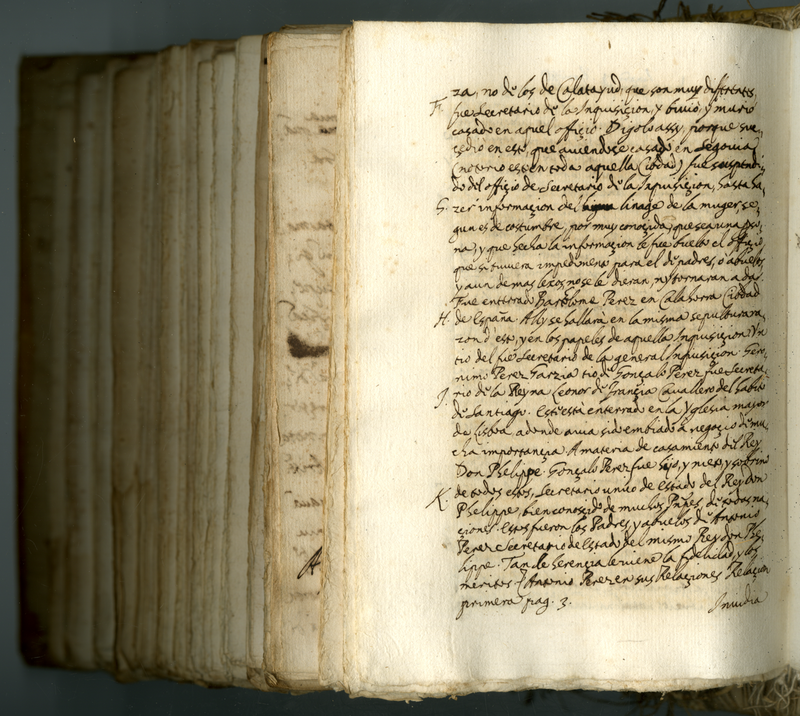 za, no de los de Calatayud, que son muy distintos,
F. fue Secretario de la Inquisiçion, y biuio, y murio
casado en aquel offiçio. Digolo assy, porque su-
çedio en esto, que auiendose casado en Segouia
(notorio es en toda aquella Ciudad) fue suspendi-
do del offiçio de Secretario de la Inquisiçion, hasta ha-
G. zer informaçion del linage de la muger, se-
gun es de costumbre, por muy conoçida que sea una perso-
na, y que hecha la informaçion le fue buelto el offiçio,
que si tuuiera impedimento para el de padres, o abuelos
y aun de mas lexos no se le dieran, ny tornaran a dar.
Fue enterrado Bartolome Perez en Calahorra Ciudad
H. de España. Ally se hallara en la misma sepultura ra-
zon d'esto, y en los papeles de aquella Inquisiçion. Vn
tio del fue Secretario de la general Inquisiçion. Gero-
nimo Perez Garzia tio de Gonçalo Perez fue Secreta-
J. rio de la Reyna Leonor de Françia Cauallero del habito
de Santiago. Este està enterrado en la Yglesia mayor
de Lisboa adonde auia sido embiado a negoçio de mu-
cha importançia. A materia de casamiento del Rey
Don Phelippe. Gonçalo Perez fue hijo, y nieto, y sobrino
K. de todos estos, Secretario unico de Estado del Rey don
Phelippe, bien conosçido de muchos Prinpes de todas na-
çiones. Estos fueron los Padres, y abuelos de Antonio
Perez Secretario de Estado del mismo Rey don Phe-
lippe. Tan de herençia le viene la fidelidad, y los
meritos. Antonio Perez en sus Relaçiones Relaçion
primera pag. 3.
Inuidia
A